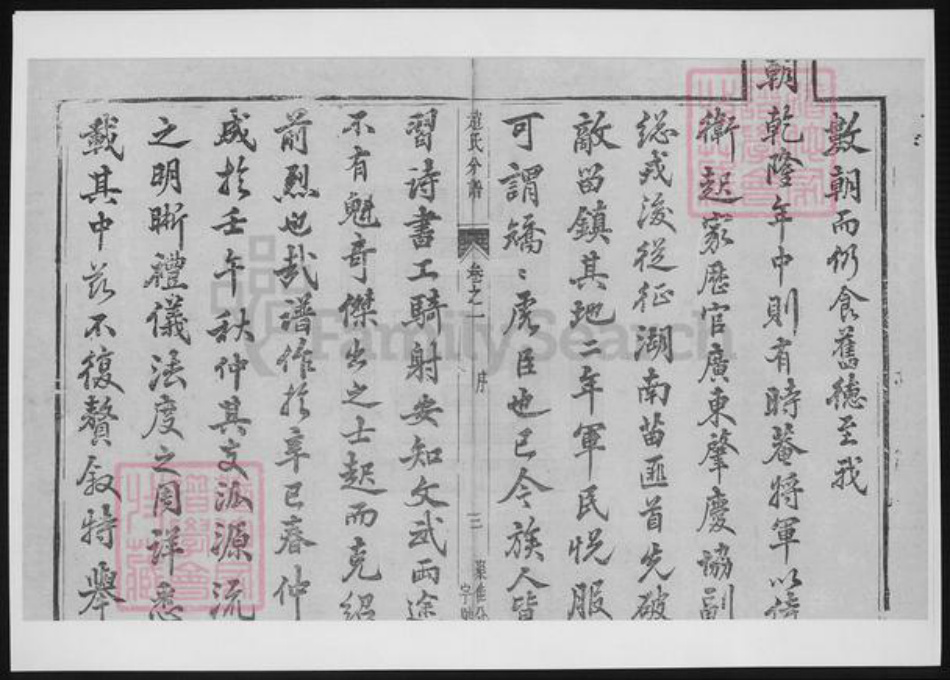 數朝而仍食舊德至我
朝乾隆年中則有時菴將軍以侍
衛起家歷官廣東肇慶協副
總戎後從征湖南苗匪首先破
敵留鎮其地二年軍民悅服
可謂矯〻虎臣也已今族人皆
卷之一 序 三
習詩書工騎射安知文武兩途
不有魁奇傑出之士起而克紹
前烈也哉譜作於辛巳春仲
成於壬午秋仲其支派源流
之明晰禮儀法度之周詳悉
載其中茲不復贅叙特舉
FamilySearch